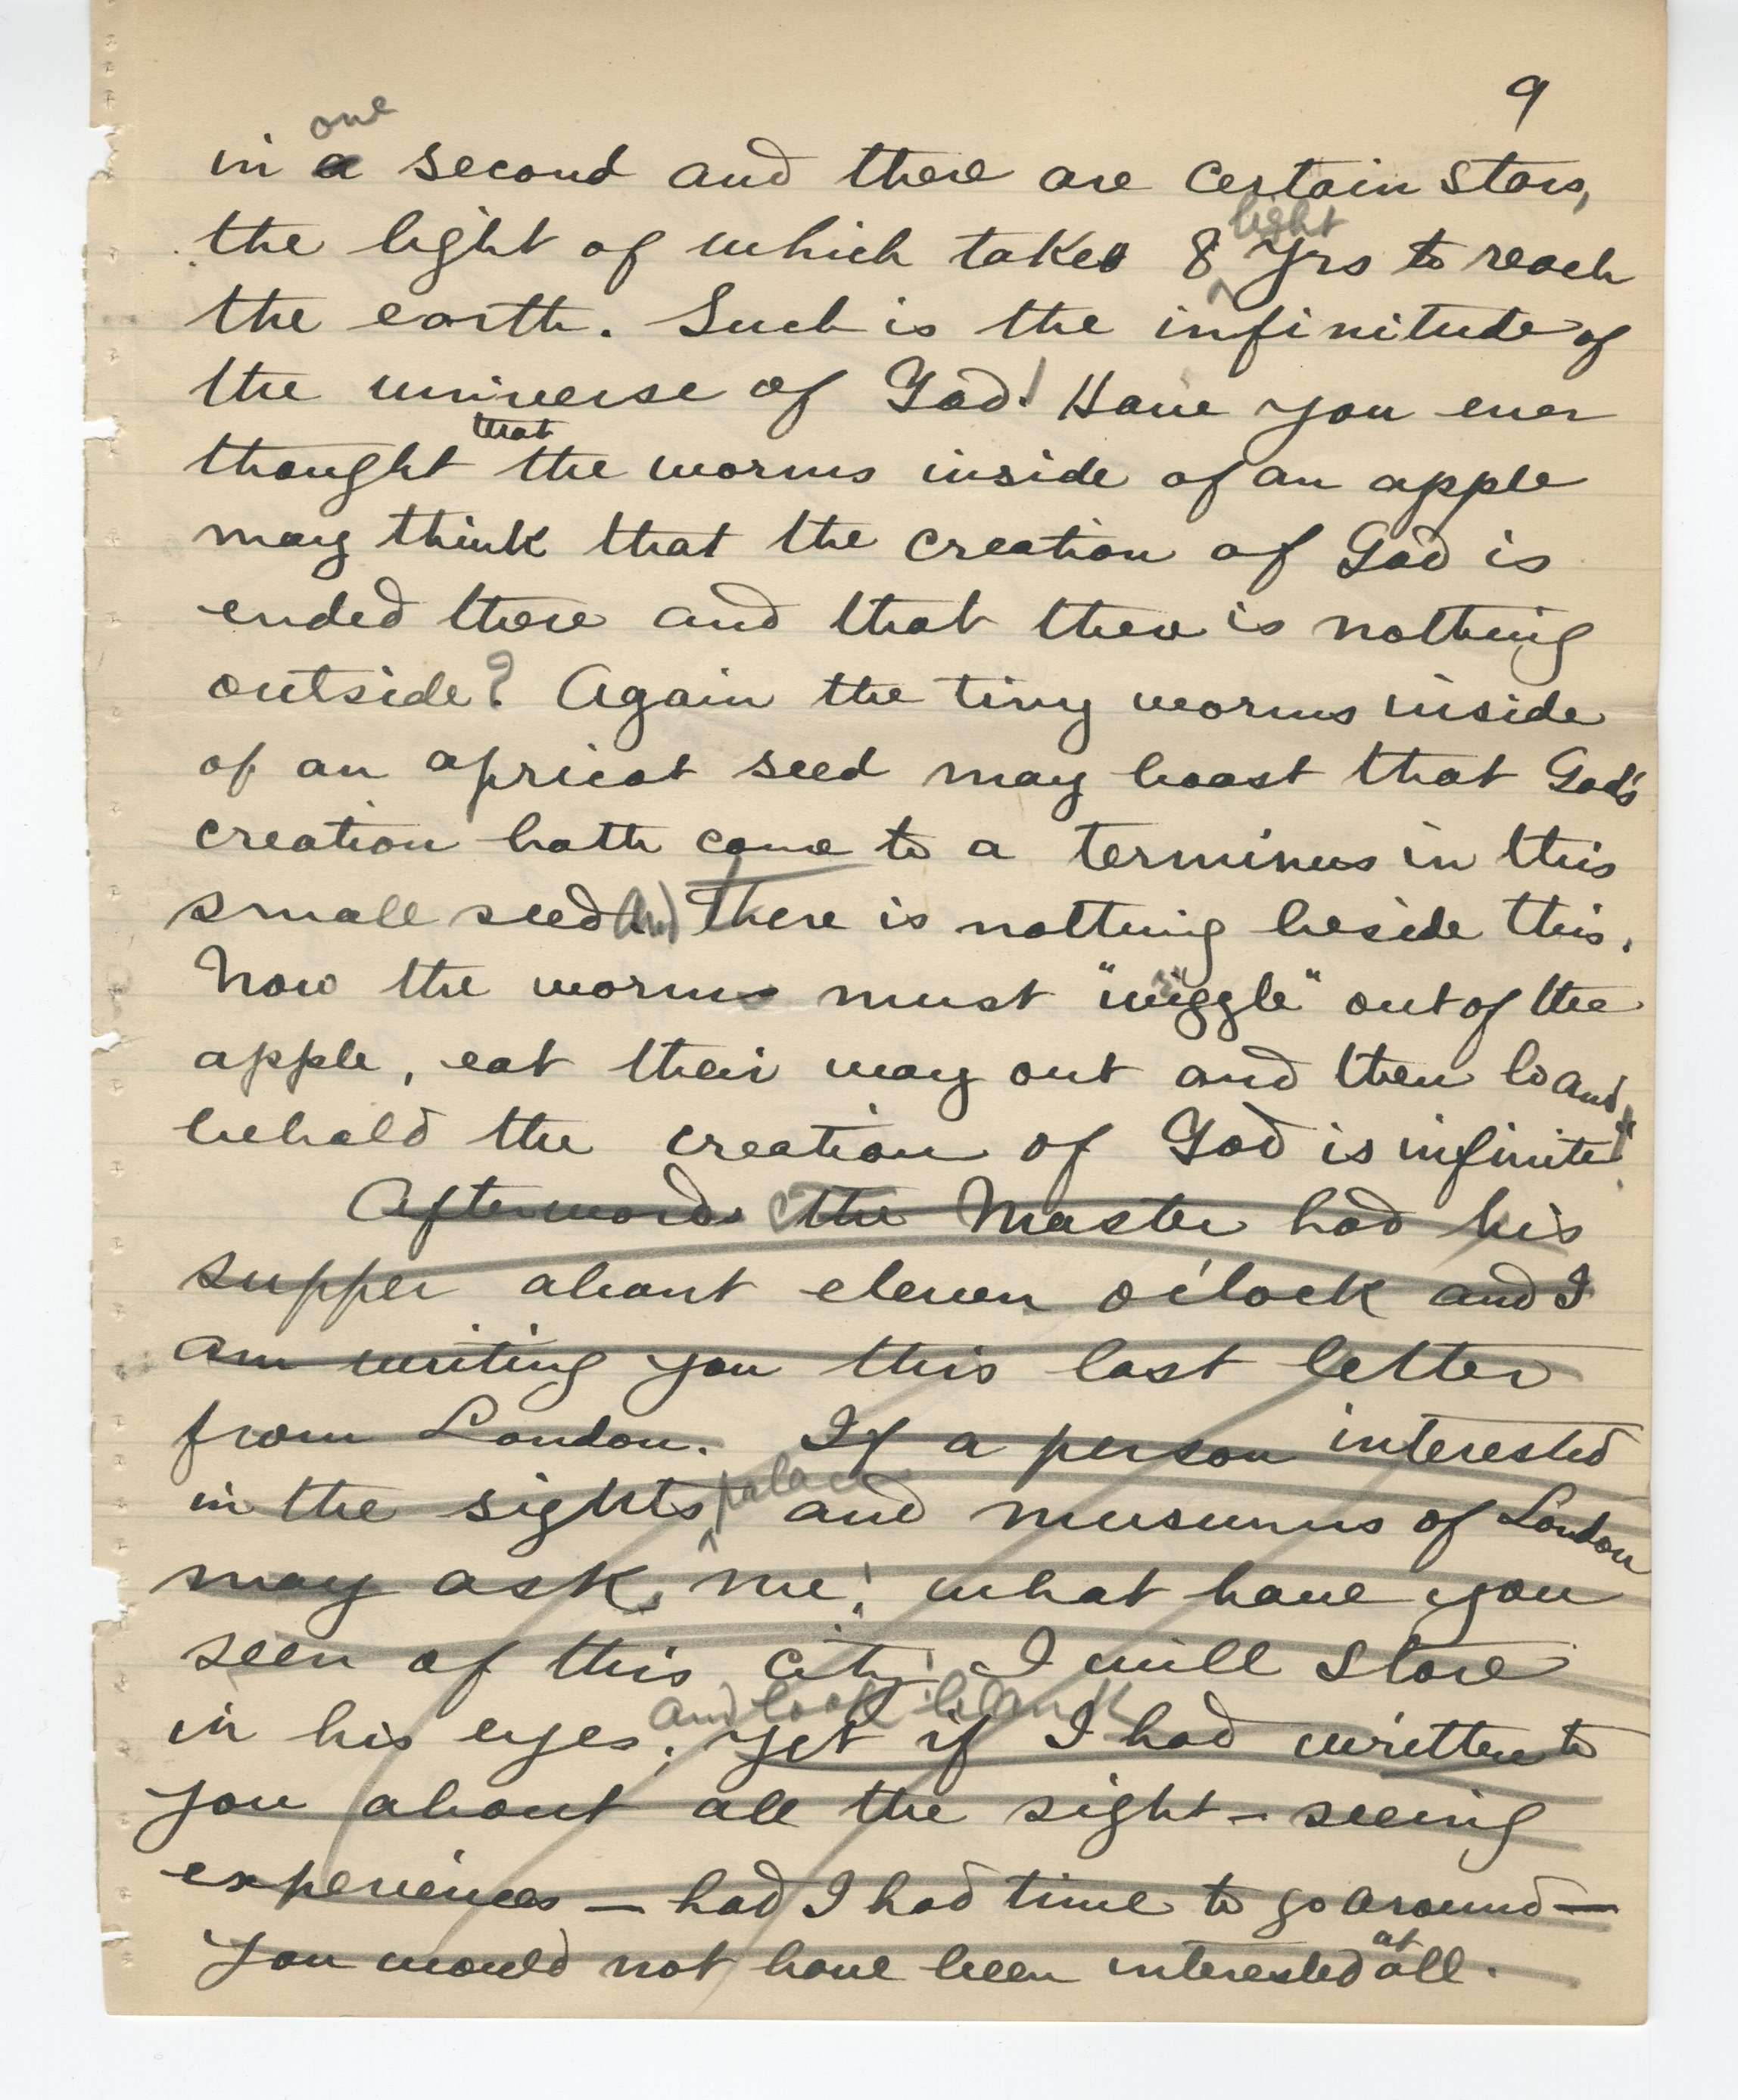 9
one
in a second and there are certain stars,
light
the light of which takes 8 yrs to reach
the earth. Such is the infinitude of
the universe of God! Have you ever
that
thought the worms inside of an apple
may think that the creation of God is
ended there and that there is nothing
outside? Again the tiny worms inside
of an apricot seed may boast that God's
creation hath come to a terminus in this
small seed and There is nothing beside this.
Now the worms must "wiggle" out of the
apple, eat their way out and then lo and
behold the creation of God is infinite!"
Afterwards the Master had his
supper about eleven o'clock and I
am writing you this last letter
from London. If a person interested
palace
in the sights and museums of London
may ask me: what have you
seen of this city: I will stare
and look blank
in his eyes. yet if I had written to
you about all the sight-seeing
experiences — had I had time to go around —
at
you would not have been interested all.